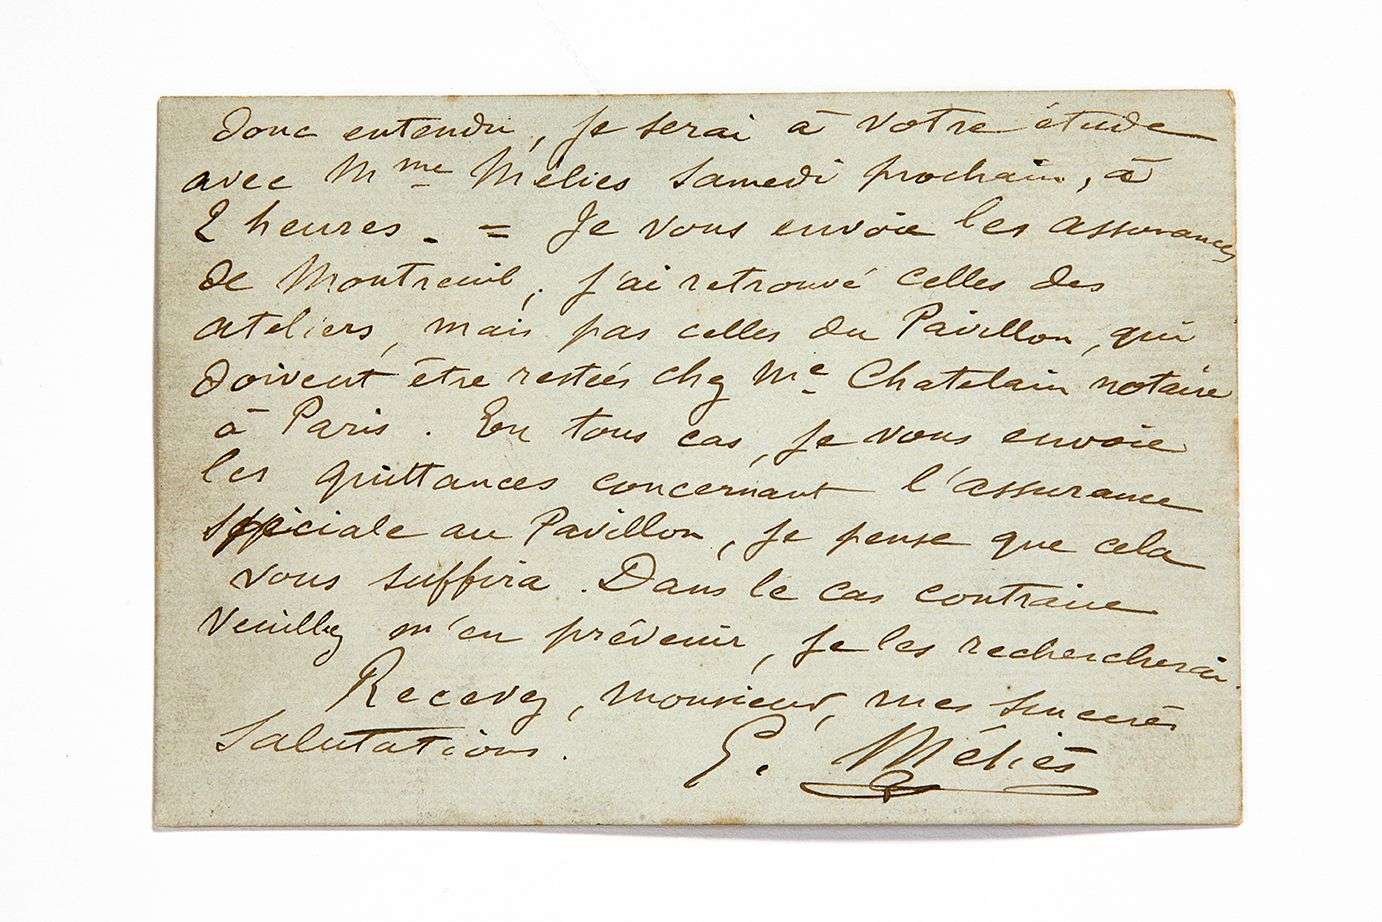 donc entendu, je serai à votre étude
avec Mme Méliès samedi prochain, à
2 heures. = Je vous envoie les assurances
de Montreuil, j'ai retrouvé celles des
ateliers, mais pas celles du Pavillon, qui
doivent être restées chez Me Chatelain notaire
à Paris. En tous cas, je vous envoie
les quittances concernant l'assurance
spéciale au Pavillon, je pense que cela
vous suffira. Dans le cas contraire
Veuillez m'en prévenir, je les rechercherai.
Recevez, monsieur, mes sincères
Salutations.
G. Méliès